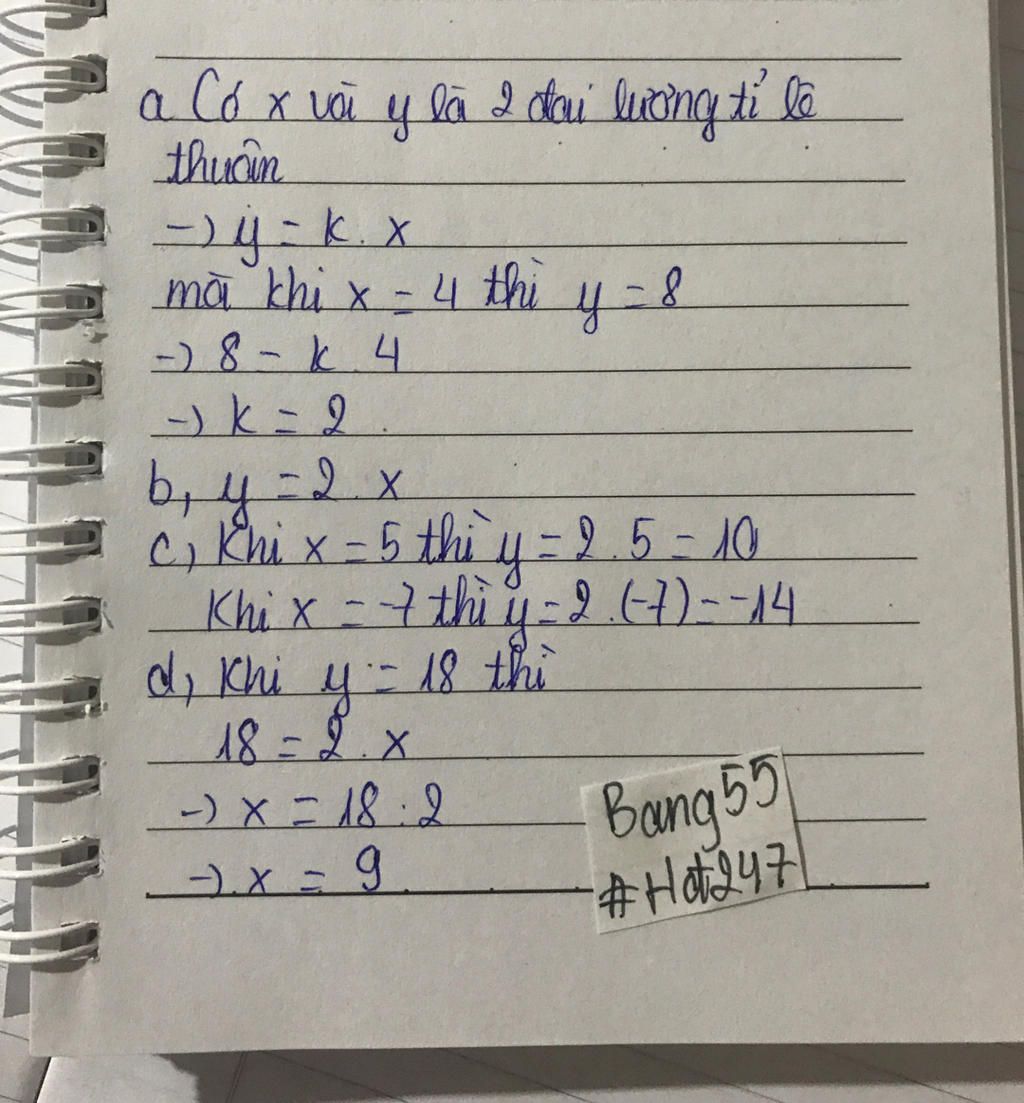 a Có x và y là 2 đại lương tỉ lệ
thuận
-) y = k. x
mà khi x = 4 thì y = 8
-) 8 = k. 4
-) k = 2.
b, y = 2. x
c, Khi x = 5 thì y = 2. 5 = 10
Khi x = -7 thì y = 2. (-7) = -14
d, Khi y = 18 thì
18 = 2. x
-) x = 18 : 2
-) x = 9
Bang55
#Hdt247